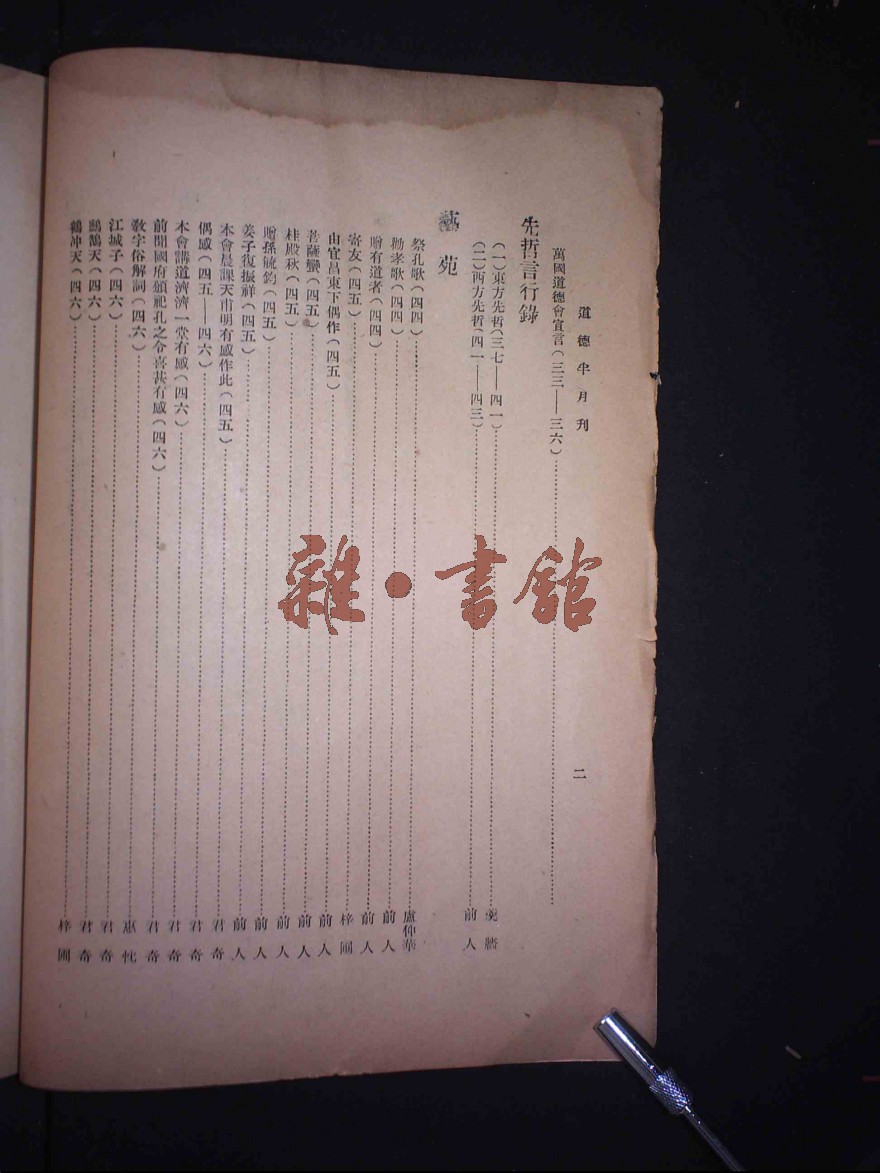 道德半月刊
二
萬國道德會宣言（三三——三六）
先哲言行錄
（一）東方先哲（三七——四一）
（二）西方先哲（四一——四三）前人
藝苑
祭孔歌（四四）盧仲華
勸孝歌（四四）前人
贈有道者（四四）前人
寄友（四五）梓圃
由宜昌東下偶作（四五）前人
菩薩蠻（四五）前人
桂殿秋（四五）前人
贈孫毓鈞（四五）前人
姜子復振祥（四五）前人
本會晨課天甫明有感作此（四五）君奇
偶感（四五——四六）君奇
本會講道濟濟一堂有感（四六）君奇
前聞國府頒祀孔之令喜甚有感（四六）君奇
敎字俗解詞（四六）惠忱
江城子（四六）君奇
鷓鴣天（四六）君奇
鶴冲天（四六）梓圃
雜·書館